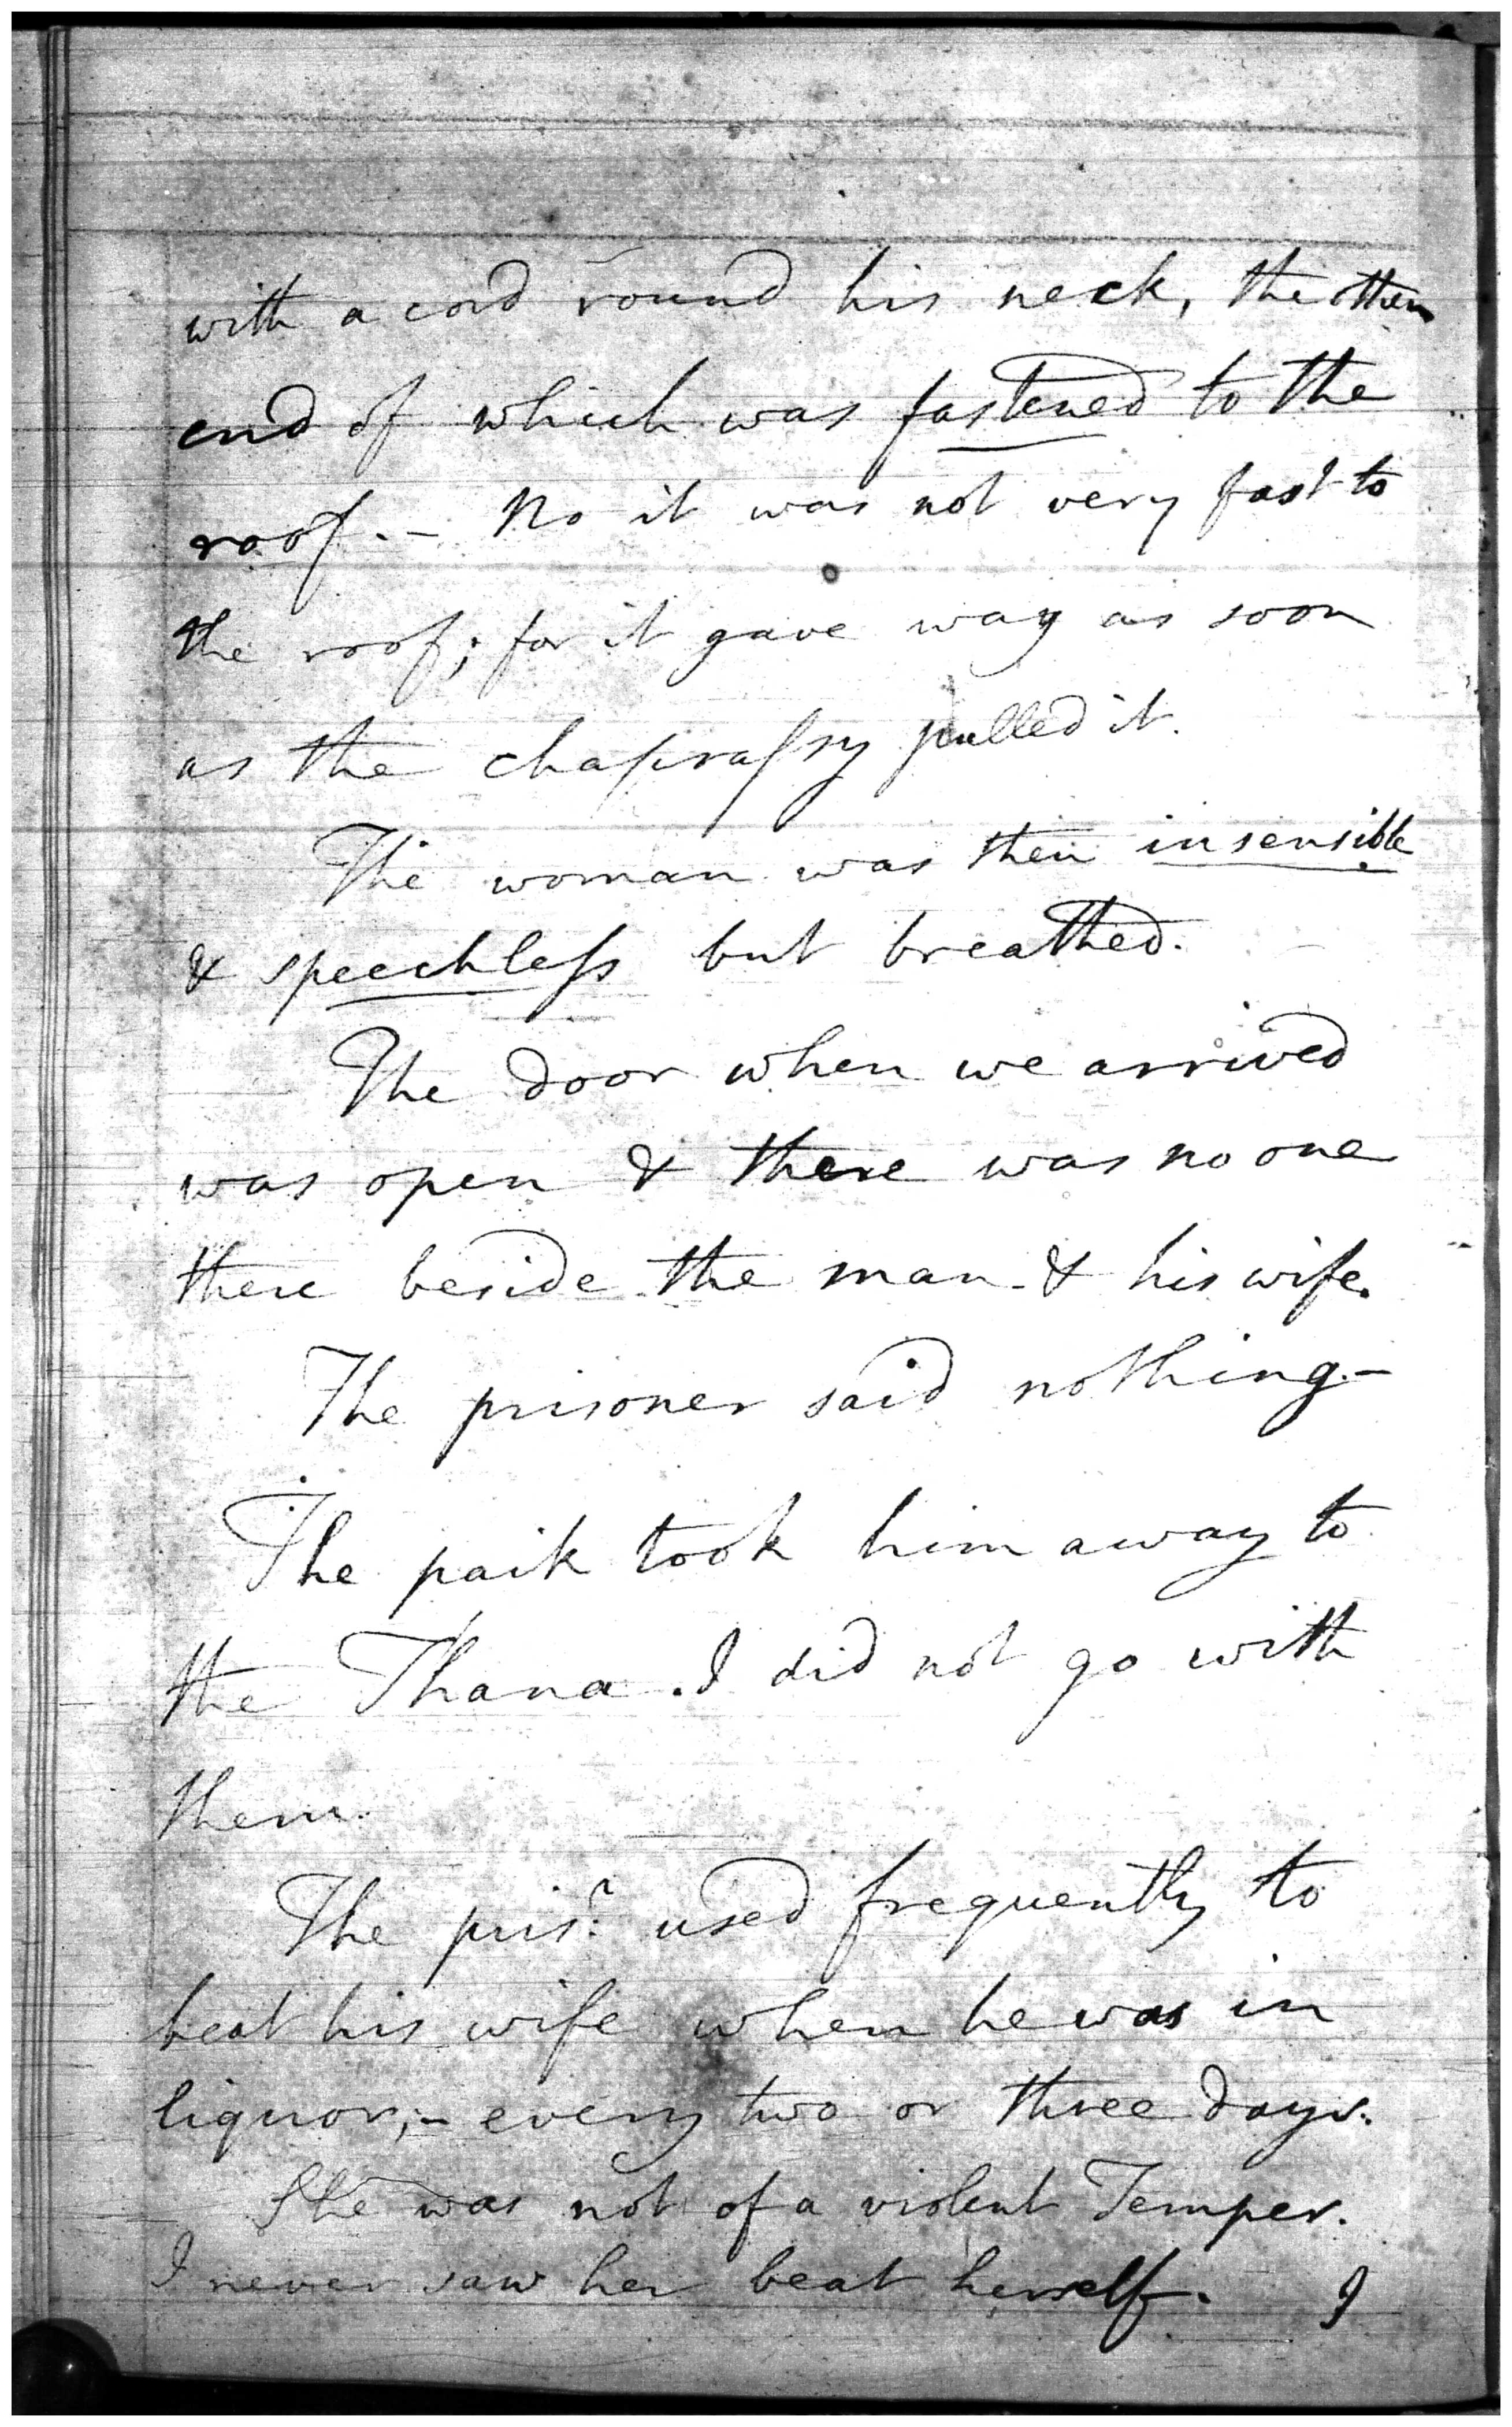 with a cord round his neck, the other
end of which was fastened to the
roof. - No it was not very fast to
the roof; for it gave way as soon
as the chaprassy pulled it.
The woman was then insensible
& speechless but breathed.
The door when we arrived
was open & there was no one
there beside the man & his wife.
The prisoner said nothing. -
The paik took him away to
the Thana. I did not go with
them.
The pris.r used frequently to
beat his wife when he was in
liquor; - every two or three days.
She was not of a violent Temper.
I never saw her beat herself. I